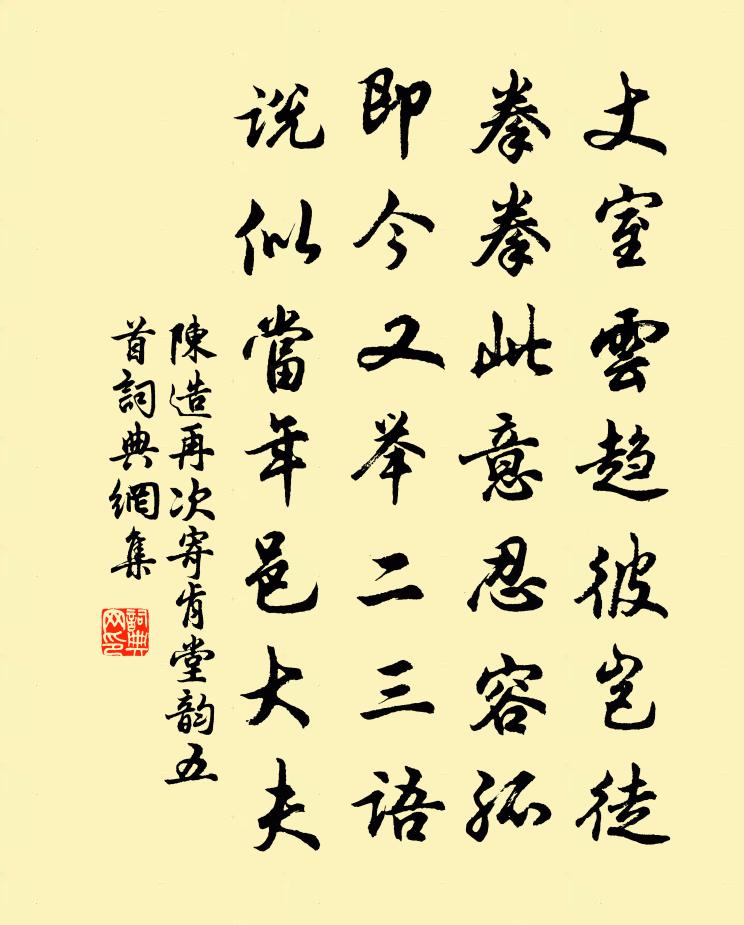 丈室雲趨彼豈徒
拳拳此意忍容孤
即今又举二三語
説似當年邑大夫
陳造再次寄肯堂韵五
首詞典網集
詞典網印